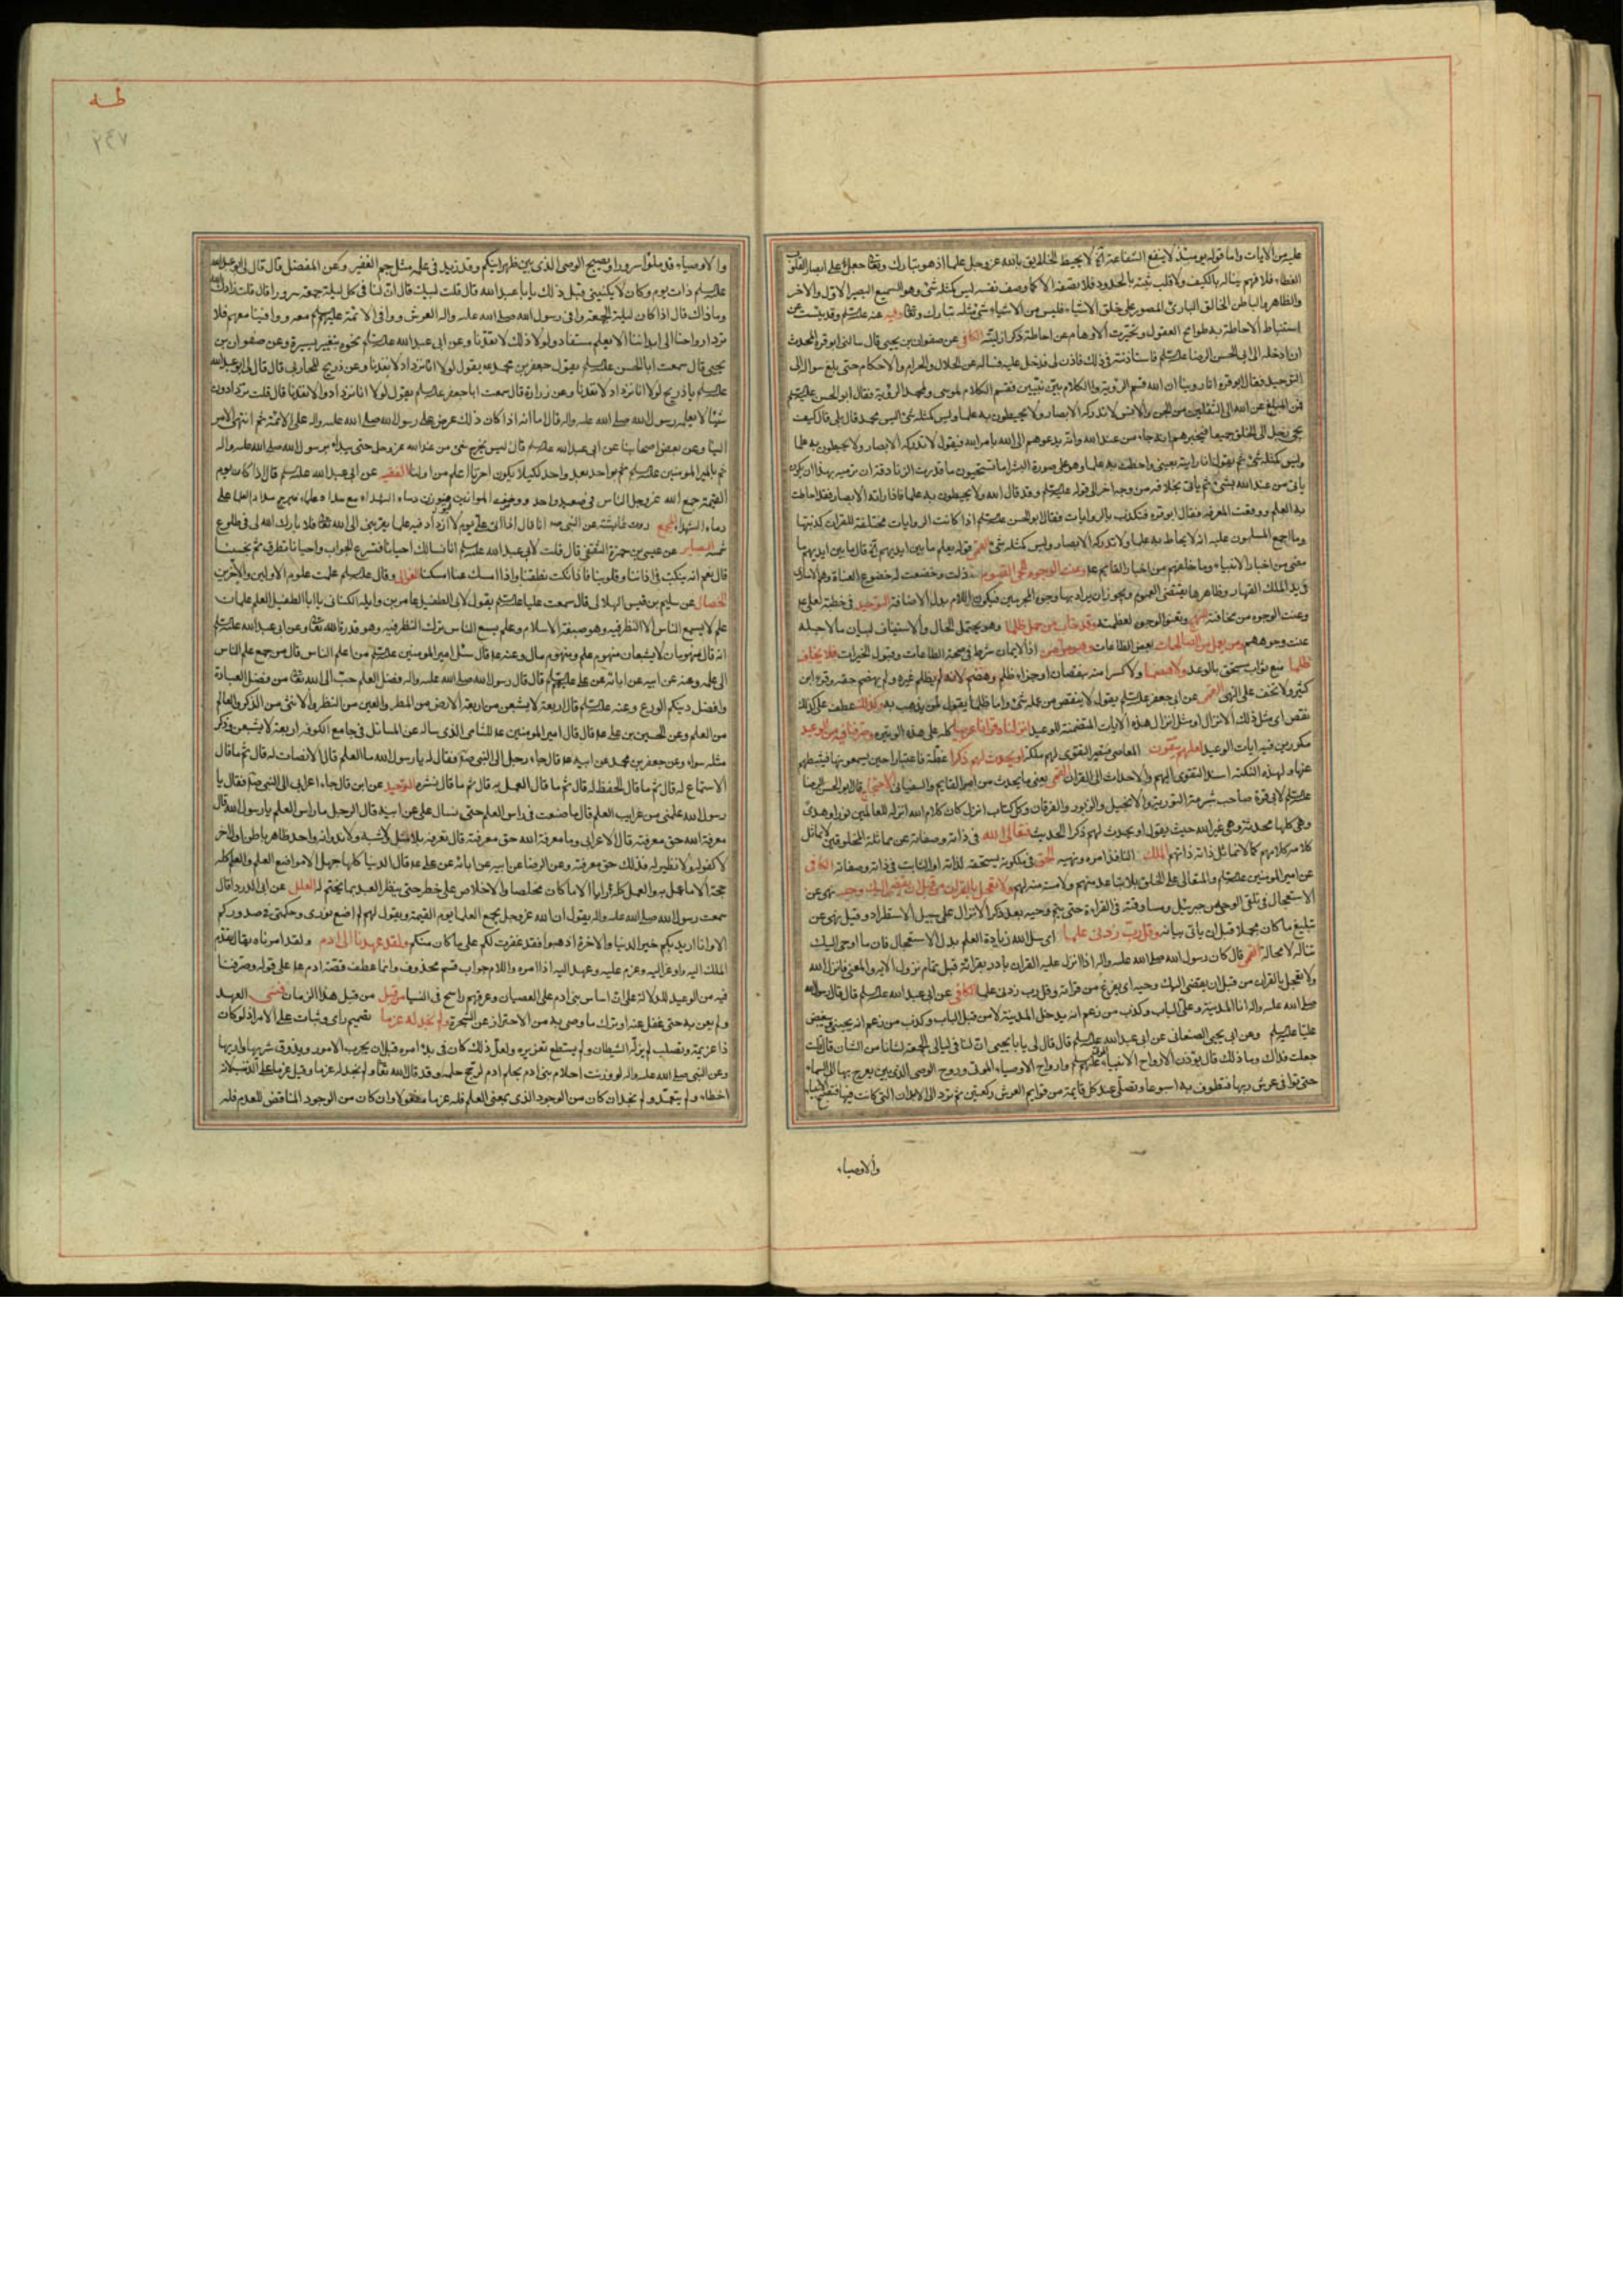 عليه من الآيات واما قوله يومئذ لا ينفع الشفاعة انه لا يحيط الخلايق بالله عز وجل علما اذ هو تبارك وتعا جعل على ابصار القلوب
الغطاء فلا فهم يناله بالكيف ولا قلب يثبته بالحدود فلا يصفه الا كما وصف نفسه ليس كمثله شئ وهو السميع البصير الاول والاخر
والظاهر والباطن الخالق البارئ المصور على خلق الاشياء فليس من الاشياء شئ مثله تبارك وتعا وفيه عنه علیه السلم وقد يئست عن
استنباط الاحاطة به طوامح العقول وتحيرت الاوهام عن احاطة ذكر ازليته الكافى عن صفوان بن يحيى قال سالنى ابو قرة المحدث
ان ادخله الى ابى الحسن الرضا علیه السلم فاستاذنته فى ذلك فاذن لى فدخل عليه فساله عن الحلال والحرام والاحكام حتى بلغ سواله الى
التوحيد فقال ابو قرة انا روينا ان الله قسم الرؤية والكلام بين نبيين فقسم الكلام لموسى ولمحمد الرؤية فقال ابو الحسن علیه السلم
فمن المبلغ عن الله الى الثقلين من الجن والانس لا تدركه الابصار ولا يحيطون به علما وليس كمثله شئ اليس محمد قال بلى قال كيف
يجئ رجل الى الخلق جميعا فيخبرهم انه جاء من عند الله وانه يدعوهم الى الله بامر الله فيقول لا تدركه الابصار ولا يحيطون به علما
وليس كمثله شئ ثم يقول انا رايته بعينى واحطت به علما وهو على صورة البشر اما تستحيون ما قدرت الزنادقة ان ترميه بهذا ان يكون
ياتى من عند الله بشئ ثم ياتى بخلافه من وجه اخر الى قوله علیه السلم وقد قال الله ولا يحيطون به علما فاذا راته الابصار فقد احاطت
به العلم ووقعت المعرفة فقال ابو قرة فتكذب بالروايات فقال ابو الحسن علیه السلم اذا كانت الروايات مختلفة للقران كذبتها
وما اجمع المسلمون عليه انه لا يحاط به علما ولا تدركه الابصار وليس كمثله شئ القمى قوله يعلم ما بين ايديهم انه قال ما بين ايديهم ما
مضى من اخبار الانبياء وما خلفهم من اخبار القايم وعنت الوجوه للحى القيوم ذلت وخضعت له خضوع العناة وهم الاسارى
فى يد الملك القهار وظاهرها يقتضى العموم ويجوز ان يراد بها وجوه المجرمين فيكون اللام بدل الاضافة التوحيد فى خطبة لعلى
وعنت الوجوه من مخافته وتعنوا الوجوه لعظمته وقد خاب من حمل ظلما وهو يحتمل الحال والاستيناف لبيان ما لاجله
عنت وجوههم ومن يعمل من الصالحات بعض الطاعات وهو مومن اذ الايمان شرط فى صحة الطاعات وقبول الخيرات فلا يخاف
ظلما منع ثواب مستحق بالوعد ولا هضما ولا كسرا منه بنقصان او جزاء ظلم وهضم لانه لم يظلم غيره ولم يهضم حقه وقرء ابن
كثير ولا تخف على النهى القمى عن ابى جعفر علیه السلم يقول لا ينقص من عمله شئ واما ظلما يقول لن يذهب به وكذلك عطف على كذلك
نقص اى مثل ذلك الانزال او مثل انزال هذه الايات المتضمنة للوعيد انزلناه قرانا عربيا كله على هذه الوتيرة وصرفنا فيه من الوعيد
مكررين فيه ايات الوعيد لعلهم يتقون المعاصى فيصير التقوى لهم ملكة او يحدث لهم ذكرا عظة فاعتبارا حين يسمعونها فيثبطهم
عنها ولهذه النكتة اسند التقوى اليهم والاحداث الى القران القمى يعنى ما يحدث من امر القايم والسفيانى الاحتجاج قال ابو الحسن الرضا
علیه السلم لابى قرة صاحب شبرمة التورية والانجيل والزبور والفرقان وكل كتاب انزل كان كلام الله انزله للعالمين نورا وهدى
وهى كلها محدثة وهى غير الله حيث يقول او يحدث لهم ذكرا الحديث فتعالى الله فى ذاته وصفاته عن مماثلة المخلوقين لا يماثل
كلامه كلامهم كما لا تماثل ذاته ذاتهم الملك النافذ امره ونهيه الحق فى ملكوته يستحقه لذاته او الثابت فى ذاته وصفاته الكافى
عن امير المومنين علیه السلم والمتعالى على الخلق بلا تباعد منهم ولا ملامسة منه لهم ولا تعجل بالقران من قبل ان يقضى اليك وحيه نهى عن
الاستعجال فى تلقى الوحى من جبرئيل ومساوقته فى القراءة حتى يتم وحيه بعد ذكر الانزال على سبيل الاستطراد وقيل نهى عن
تبليغ ما كان مجملا قبل ان ياتى بيانه وقل رب زدنى علما اى سل الله زيادة العلم بدل الاستعجال فان ما اوحى اليك
تناله لا محالة القمى قال كان رسول الله صلى الله عليه واله اذا انزل عليه القران بادر بقرائته قبل تمام نزول الاية والمعنى فانزل الله
ولا تعجل بالقران من قبل ان يقضى اليك وحيه اى يفرغ من قرائته وقل رب زدنى علما الكافى عن ابى عبد الله علیه السلم قال قال رسول الله
صلى الله عليه واله انا المدينة وعلى الباب وكذب من زعم انه يدخل المدينة لا من قبل الباب وكذب من زعم انه يحبنى ويبغض
عليا علیه السلم وعن ابى يحيى الصنعانى عن ابى عبد الله علیه السلم قال قال لى يا با يحيى ان لنا فى ليالى الجمعة لشانا من الشان قال قلت
جعلت فداك وما ذلك قال يؤذن لارواح الانبياء الموتى علیهم السلم وارواح الاوصياء الموتى وروح الوصى الذى بين يعرج بها الى السماء
حتى توافى عرش ربها فتطوف به اسبوعا وتصلى عند كل قايمة من قوايم العرش ركعتين ثم ترد الى الابدان التى كانت فيها فتصبح الانبياء
والاوصياء
طه
٢٤٧
والاوصياء قد ملؤا سرورا ويصبح الوصى الذى بين ظهرانيكم وقد زيد فى علمه مثل جم الغفير وعن المفضل قال قال لى ابو عبد الله
علیه السلم ذات يوم وكان لا يكنينى قبل ذلك يا با عبد الله قال قلت لبيك قال ان لنا فى كل ليلة جمعة سرورا قال قلت زادك الله
وما ذاك قال اذا كان ليلة الجمعة وافى رسول الله صلى الله عليه واله العرش ووافى الائمة علیهم السلم معه ووافينا معهم فلا
ترد ارواحنا الى ابداننا الا بعلم مستفاد ولولا ذلك لانفدنا وعن ابى عبد الله علیه السلم نحوه بتغيير يسيرة وعن صفوان بن
يحيى قال سمعت ابا الحسن علیه السلم يقول جعفر بن محمد يقول لولا انا نزداد لانفدنا وعن ذريح المحاربى قال قال لى ابو عبد الله
علیه السلم يا ذريح لولا انا نزداد لانفدنا وعن زرارة قال سمعت ابا جعفر علیه السلم يقول لولا انا نزداد لانفدنا قال قلت تزدادون
شيئا لا يعلمه رسول الله صلى الله عليه واله قال اما انه اذا كان ذلك عرض على رسول الله صلى الله عليه واله على الائمة ثم انتهى الامر
الينا وعن بعض اصحابنا عن ابى عبد الله علیه السلم قال ليس يخرج شئ من عند الله عز وجل حتى يبدأ برسول الله صلى الله عليه واله
ثم بامير المومنين علیه السلم ثم بواحد بعد واحد لكيلا يكون اخرنا اعلم من اولنا الفقيه عن ابى عبد الله علیه السلم قال اذا كان يوم
القيمة جمع الله عز وجل الناس فى صعيد واحد ووضعت الموازين فيوزن دماء الشهداء مع مداد العلماء فيرجح مداد العلماء على
دماء الشهداء المجمع روت عايشة عن النبى انه قال اذا اتى على يوم لا ازداد فيه علما يقربنى الى الله تعا فلا بارك الله لى فى طلوع
شمسه البصاير عن عيسى بن حمزة الثقفى قال قلت لابى عبد الله علیه السلم انا نسالك احيانا فتسرع الجواب واحيانا تطرق ثم تجيبنا
قال نعم انه ينكت فى اذاننا وقلوبنا فاذا نكت نطقنا واذا امسك عنا امسكنا العوالى وقال علیه السلم علمت علوم الاولين والاخرين
الخصال عن سليم بن قيس الهلالى قال سمعت عليا علیه السلم يقول لابى الطفيل عامر بن واثلة الكنانى يا ابا الطفيل العلم علمان
علم لا يسع الناس الا النظر فيه وهو صبغة الاسلام وعلم يسع الناس ترك النظر فيه وهو قدرة الله تعا وعن ابى عبد الله علیه السلم
انه قال منهومان لا يشبعان منهوم علم ومنهوم مال وعنه قال سئل امير المومنين علیه السلم من اعلم الناس قال من جمع علم الناس
الى علمه وعنه عن ابيه عن ابائه عن على علیهم السلم قال قال رسول الله صلى الله عليه واله فضل العلم احب الى الله تعا من فضل العبادة
وافضل دينكم الورع وعنه علیه السلم قال اربعة لا يشبعن من اربعة الارض من المطر والعين من النظر والانثى من الذكر والعالم
من العلم وعن الحسين بن على قال قال امير المومنين للشامى الذى ساله عن المسائل فى جامع الكوفه اربعة لا يشبعن وذكر
مثله سواء وعن جعفر بن محمد عن ابيه قال جاء رجل الى النبى فقال له يا رسول الله ما العلم قال الانصات له قال ثم ما قال
الاستماع له قال ثم ما قال الحفظ له قال ثم ما قال العمل به قال ثم ما قال نشره التوحيد عن ابن قال جاء اعرابى الى النبى فقال يا
رسول الله علمنى من غرايب العلم قال ما صنعت فى راس العلم حتى تسال عن غرايبه قال الرجل ما راس العلم يا رسول الله قال
معرفة الله حق معرفته قال الاعرابى وما معرفة الله حق معرفته قال تعرفه بلا مثل ولا شبه ولا ند وانه واحد ظاهر باطن اول اخر
لا كفو له ولا نظير له فذلك حق معرفته وعن الرضا عن ابيه عن ابائه عن على قال الدنيا كلها جهل الا مواضع العلم والعلم كله
حجة الا ما عمل به والعمل كله رياء الا ما كان مخلصا والاخلاص على خطر حتى ينظر العبد بما يختم له العلل عن ابى الدرداء قال
سمعت رسول الله صلى الله عليه واله يقول ان الله عز وجل يجمع العلماء يوم القيمة ويقول لهم لم اضع نورى وحكمتى فى صدوركم
الا وانا اريد بكم خير الدنيا والاخرة اذهبوا فقد غفرت لكم على ما كان منكم ولقد عهدنا الى ادم ولقد امرناه يقال تقدم
الملك اليه واوعز اليه وعزم عليه وعهد اليه اذا امره واللام جواب قسم محذوف وانما عطف قصة ادم على قوله وصرفنا
فيه من الوعيد للدلالة على ان اساس بنى ادم على العصيان وعرقهم راسخ فى النسيان من قبل من قبل هذا الزمان فنسى العهد
ولم يعن به حتى غفل عنه او ترك ما وصى به من الاحتراز عن الشجرة ولم نجد له عزما تصميم راى وثبات على الامر اذ لو كان
ذا عزيمة وتصلب لم يزله الشيطان ولم يستطع تغريره ولعل ذلك كان فى بدء امره قبل ان يجرب الامور ويذوق شريها واريها
وعن النبى صلى الله عليه واله لو وزنت احلام بنى ادم بحلم ادم لرجح حلمه وقد قال الله تعا ولم نجد له عزما وقيل عزما على الذنب لانه
اخطاء ولم يتعمد ولم نجد ان كان من الوجود الذى بمعنى العلم فله عزما مفعولاه وان كان من الوجود المناقض للعدم فله